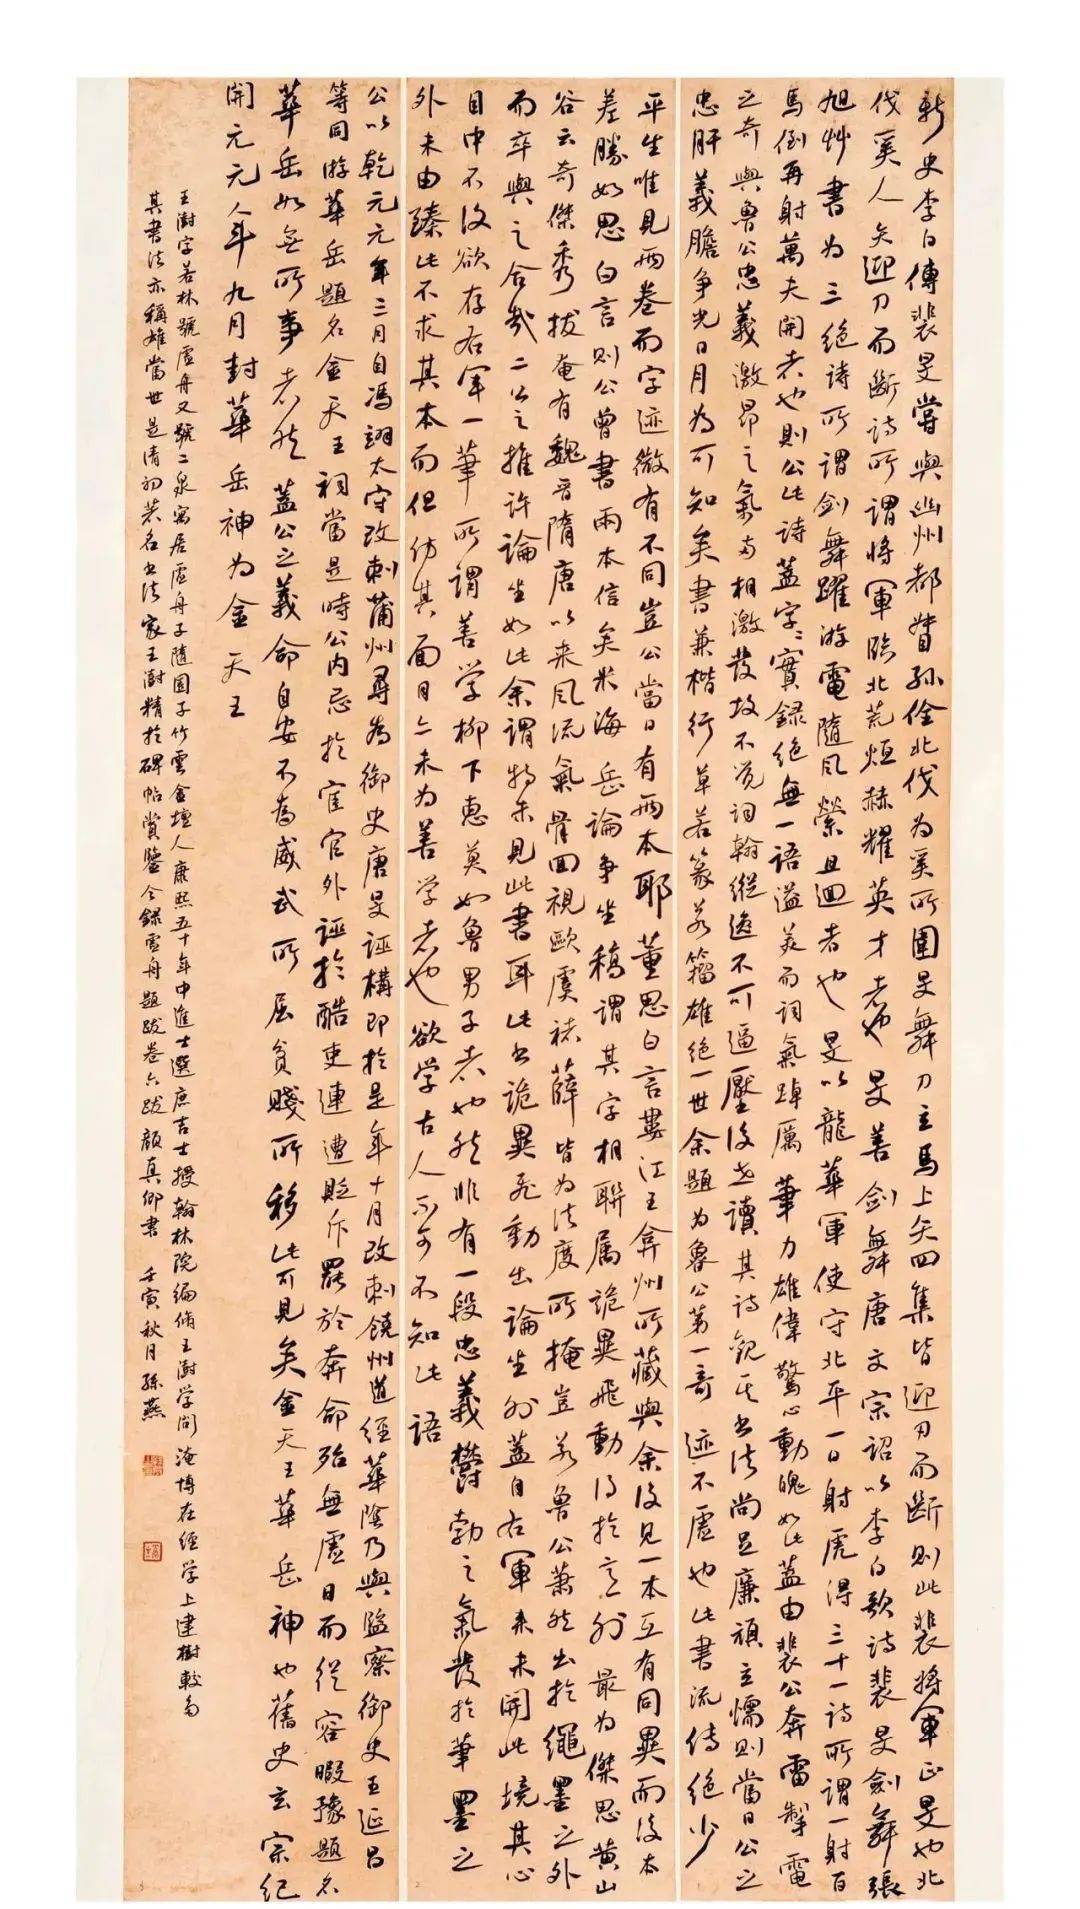 新史李白傳裴旻嘗與幽州都督孫佺北伐為奚所圍旻舞刀立馬上矢四集皆迎刀而斷則此裴將軍正旻也北
伐奚人矢迎刀而斷詩所謂將軍臨北荒烜赫耀英才者也旻善劍舞唐文宗詔以李白歌詩裴旻劍舞張
旭艸書為三絕詩所謂劍舞躍游電隨風縈且迴者也旻以龍華軍使守北平一日射虎得三十一詩所謂一射百
馬倒再射萬夫開者也則公此詩蓋字〻實錄絕無一語溢美而詞氣踔厲筆力雄偉驚心動魄如此蓋由裴公奔雷掣電
之奇與魯公忠義激昂之氣兩相激發故不覺詞翰縱逸不可逼壓後世讀其詩觀其書法尚足廉頑立懦則當日公之
忠肝義膽爭光日月為可知矣書兼楷行草若篆若籀雄絕一世余題為魯公第一奇迹不虛也此書流傳絕少
平生唯見兩卷而字迹微有不同豈公當日有兩本耶董思白言婁江王弇州所藏與余後見一本互有同異而後本
差勝如思白言則公曾書兩本信矣米海岳論爭坐稿謂其字相聯屬詭異飛動得於意外最為傑思黃山
谷云奇傑秀拔奄有魏晉隋唐以來風流氣骨回視歐虞褚薛皆為法度所掩豈若魯公蕭然出於繩墨之外
而卒與之合哉二公之推許論坐如此余謂特未見此書耳此書詭異飛動出論坐外蓋自右軍來未開此境其心
目中不復欲存右軍一筆所謂善学柳下惠莫如魯男子者也然非有一段忠義鬱勃之氣發於筆墨之
外未由臻此不求其本而但仿其面目亦未為善学者也欲学古人不可不知此語
公以乾元元年三月自馮翊太守改刺蒲州尋為御史唐旻誣構即於是年十月改刺饒州道經華陰乃與監察御史王延昌
等同游華岳題名金天王祠當是時公內忌於宦官外誣於酷吏連遭貶斥罷於奔命殆無虛日而從容暇豫題名
華岳如無所事者然蓋公之義命自安不為威武所屈貧賤所移此可見矣金天王華岳神也舊史玄宗紀
開元元年九月封華岳神為金天王
王澍字若林號虛舟又號二泉寓居虛舟子隨園子竹雲金壇人康熙五十年中進士選庶吉士授翰林院編修王澍学問淹博在經学上建樹較多
其書法亦稱雄當世是清初著名書法家王澍精於碑帖賞鑒今錄虛舟題跋卷六跋顏真卿書 壬寅秋月孫燕